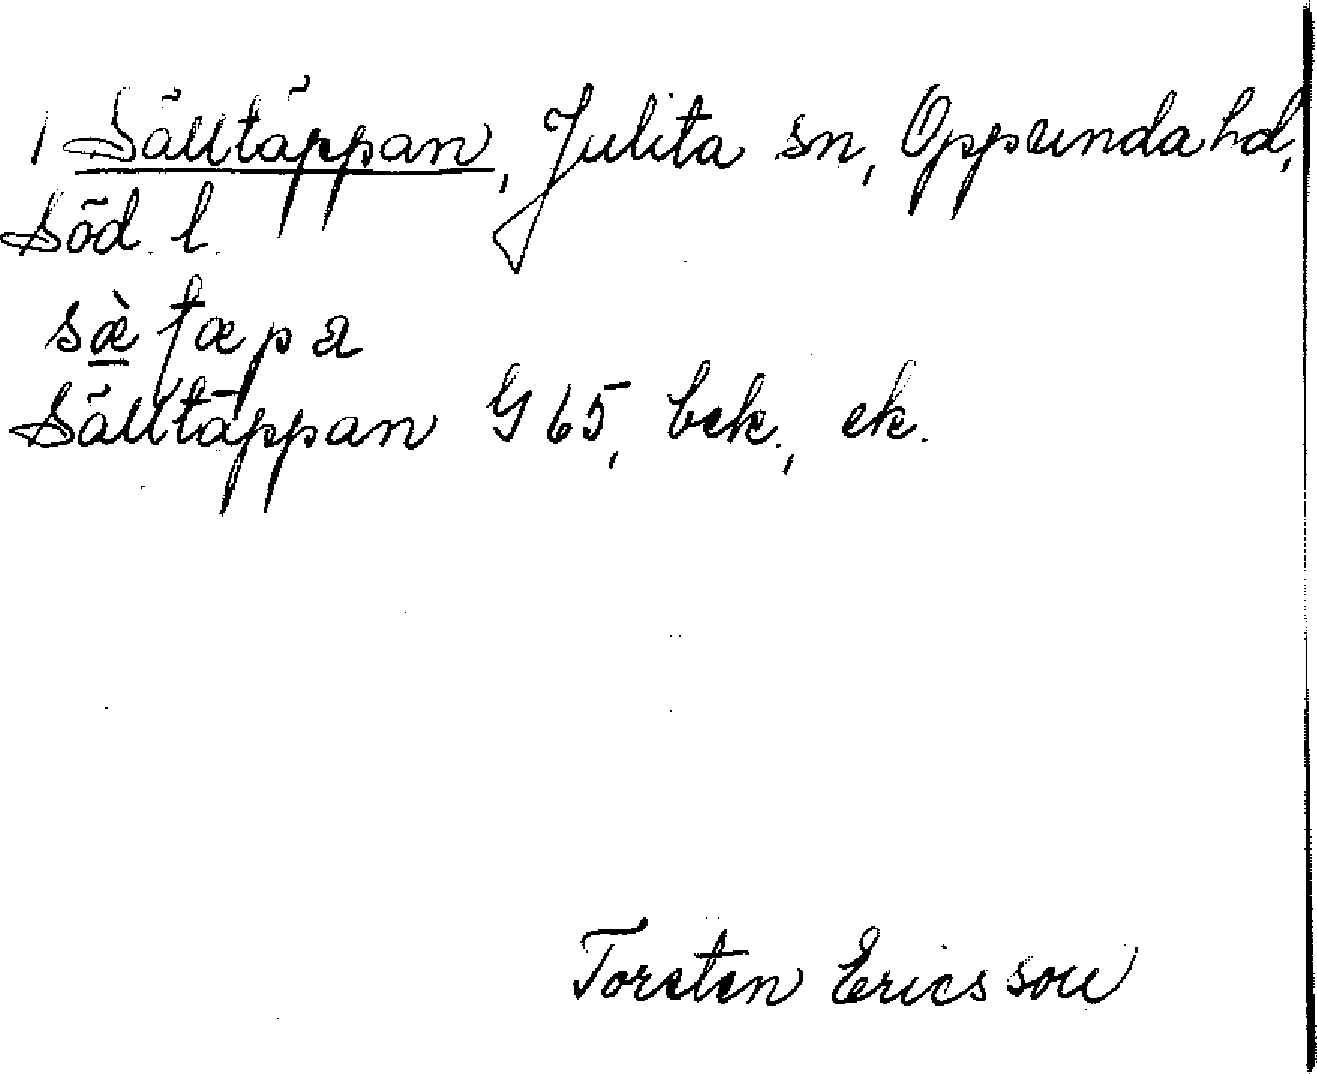 1 Sälltäppan, Julita sn, Oppunda hd,
Söd. l.
sæ̀ tæpa
Sälltäppan G 65, bek., ek.
Torsten Ericsson